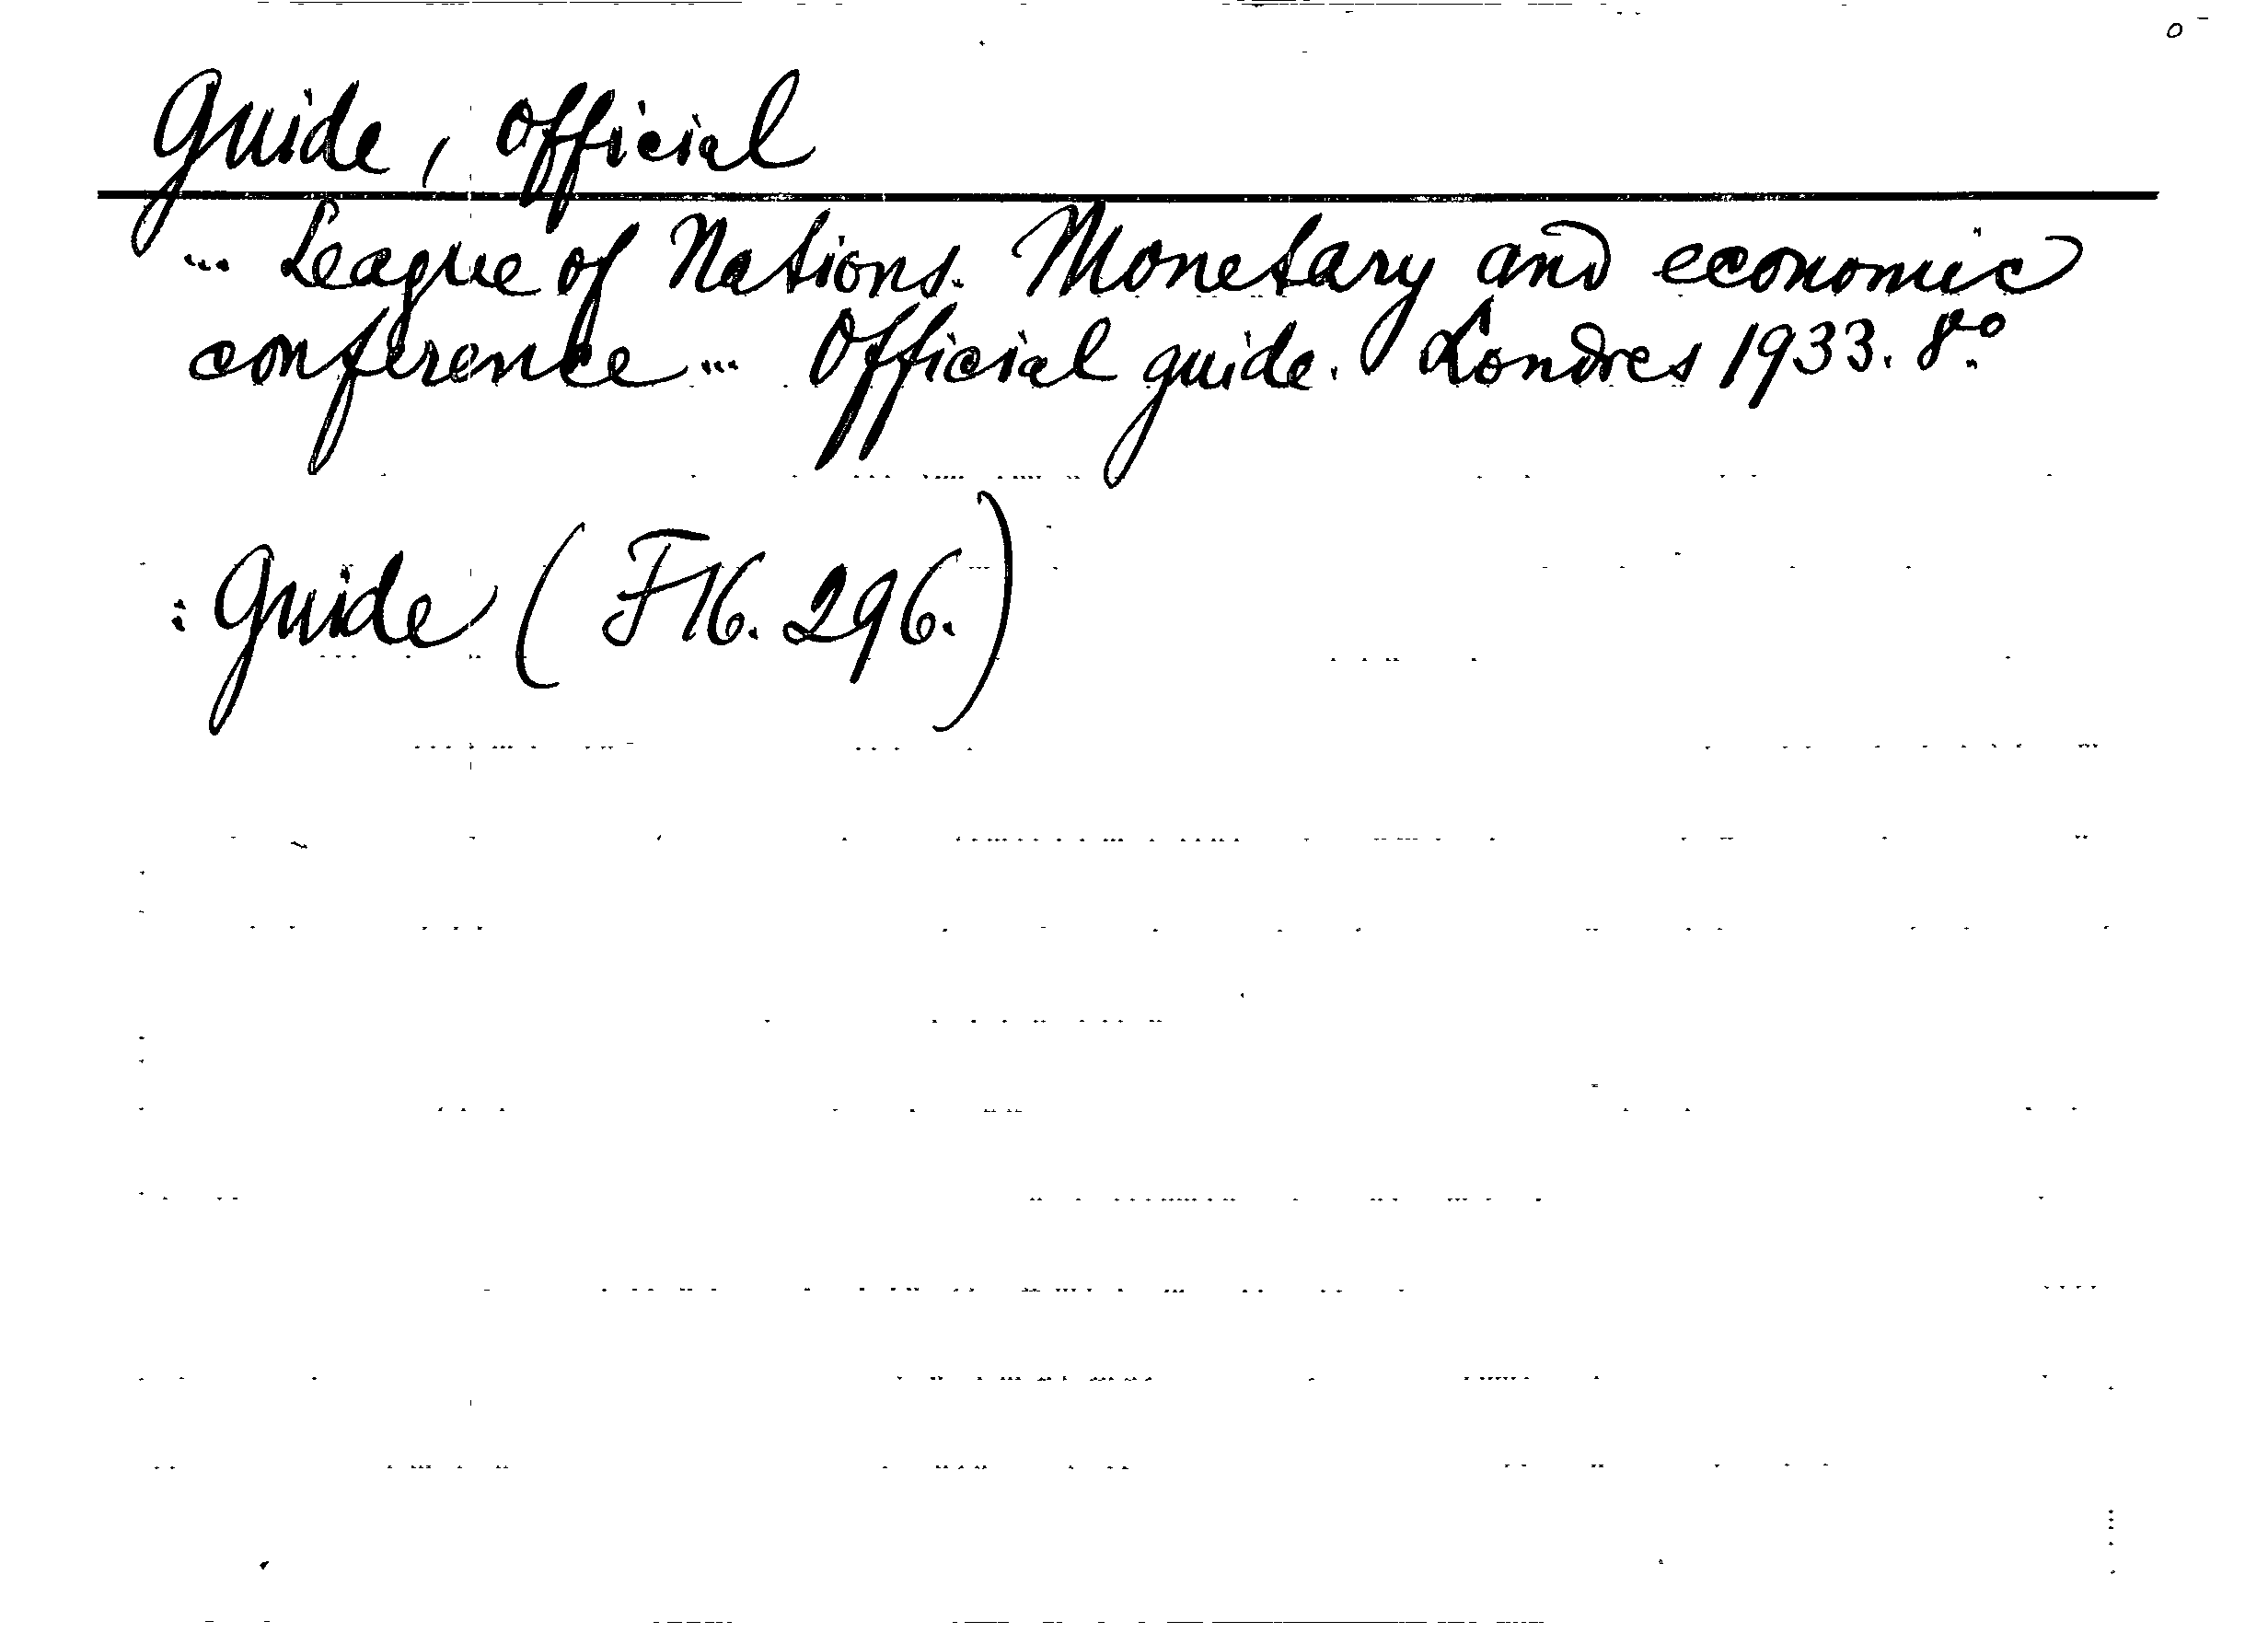 Guide, Official
... League of Nations. Monetary and economic
conference ... Official guide. Londres 1933. 8:o
: Guide (F16. 296.)